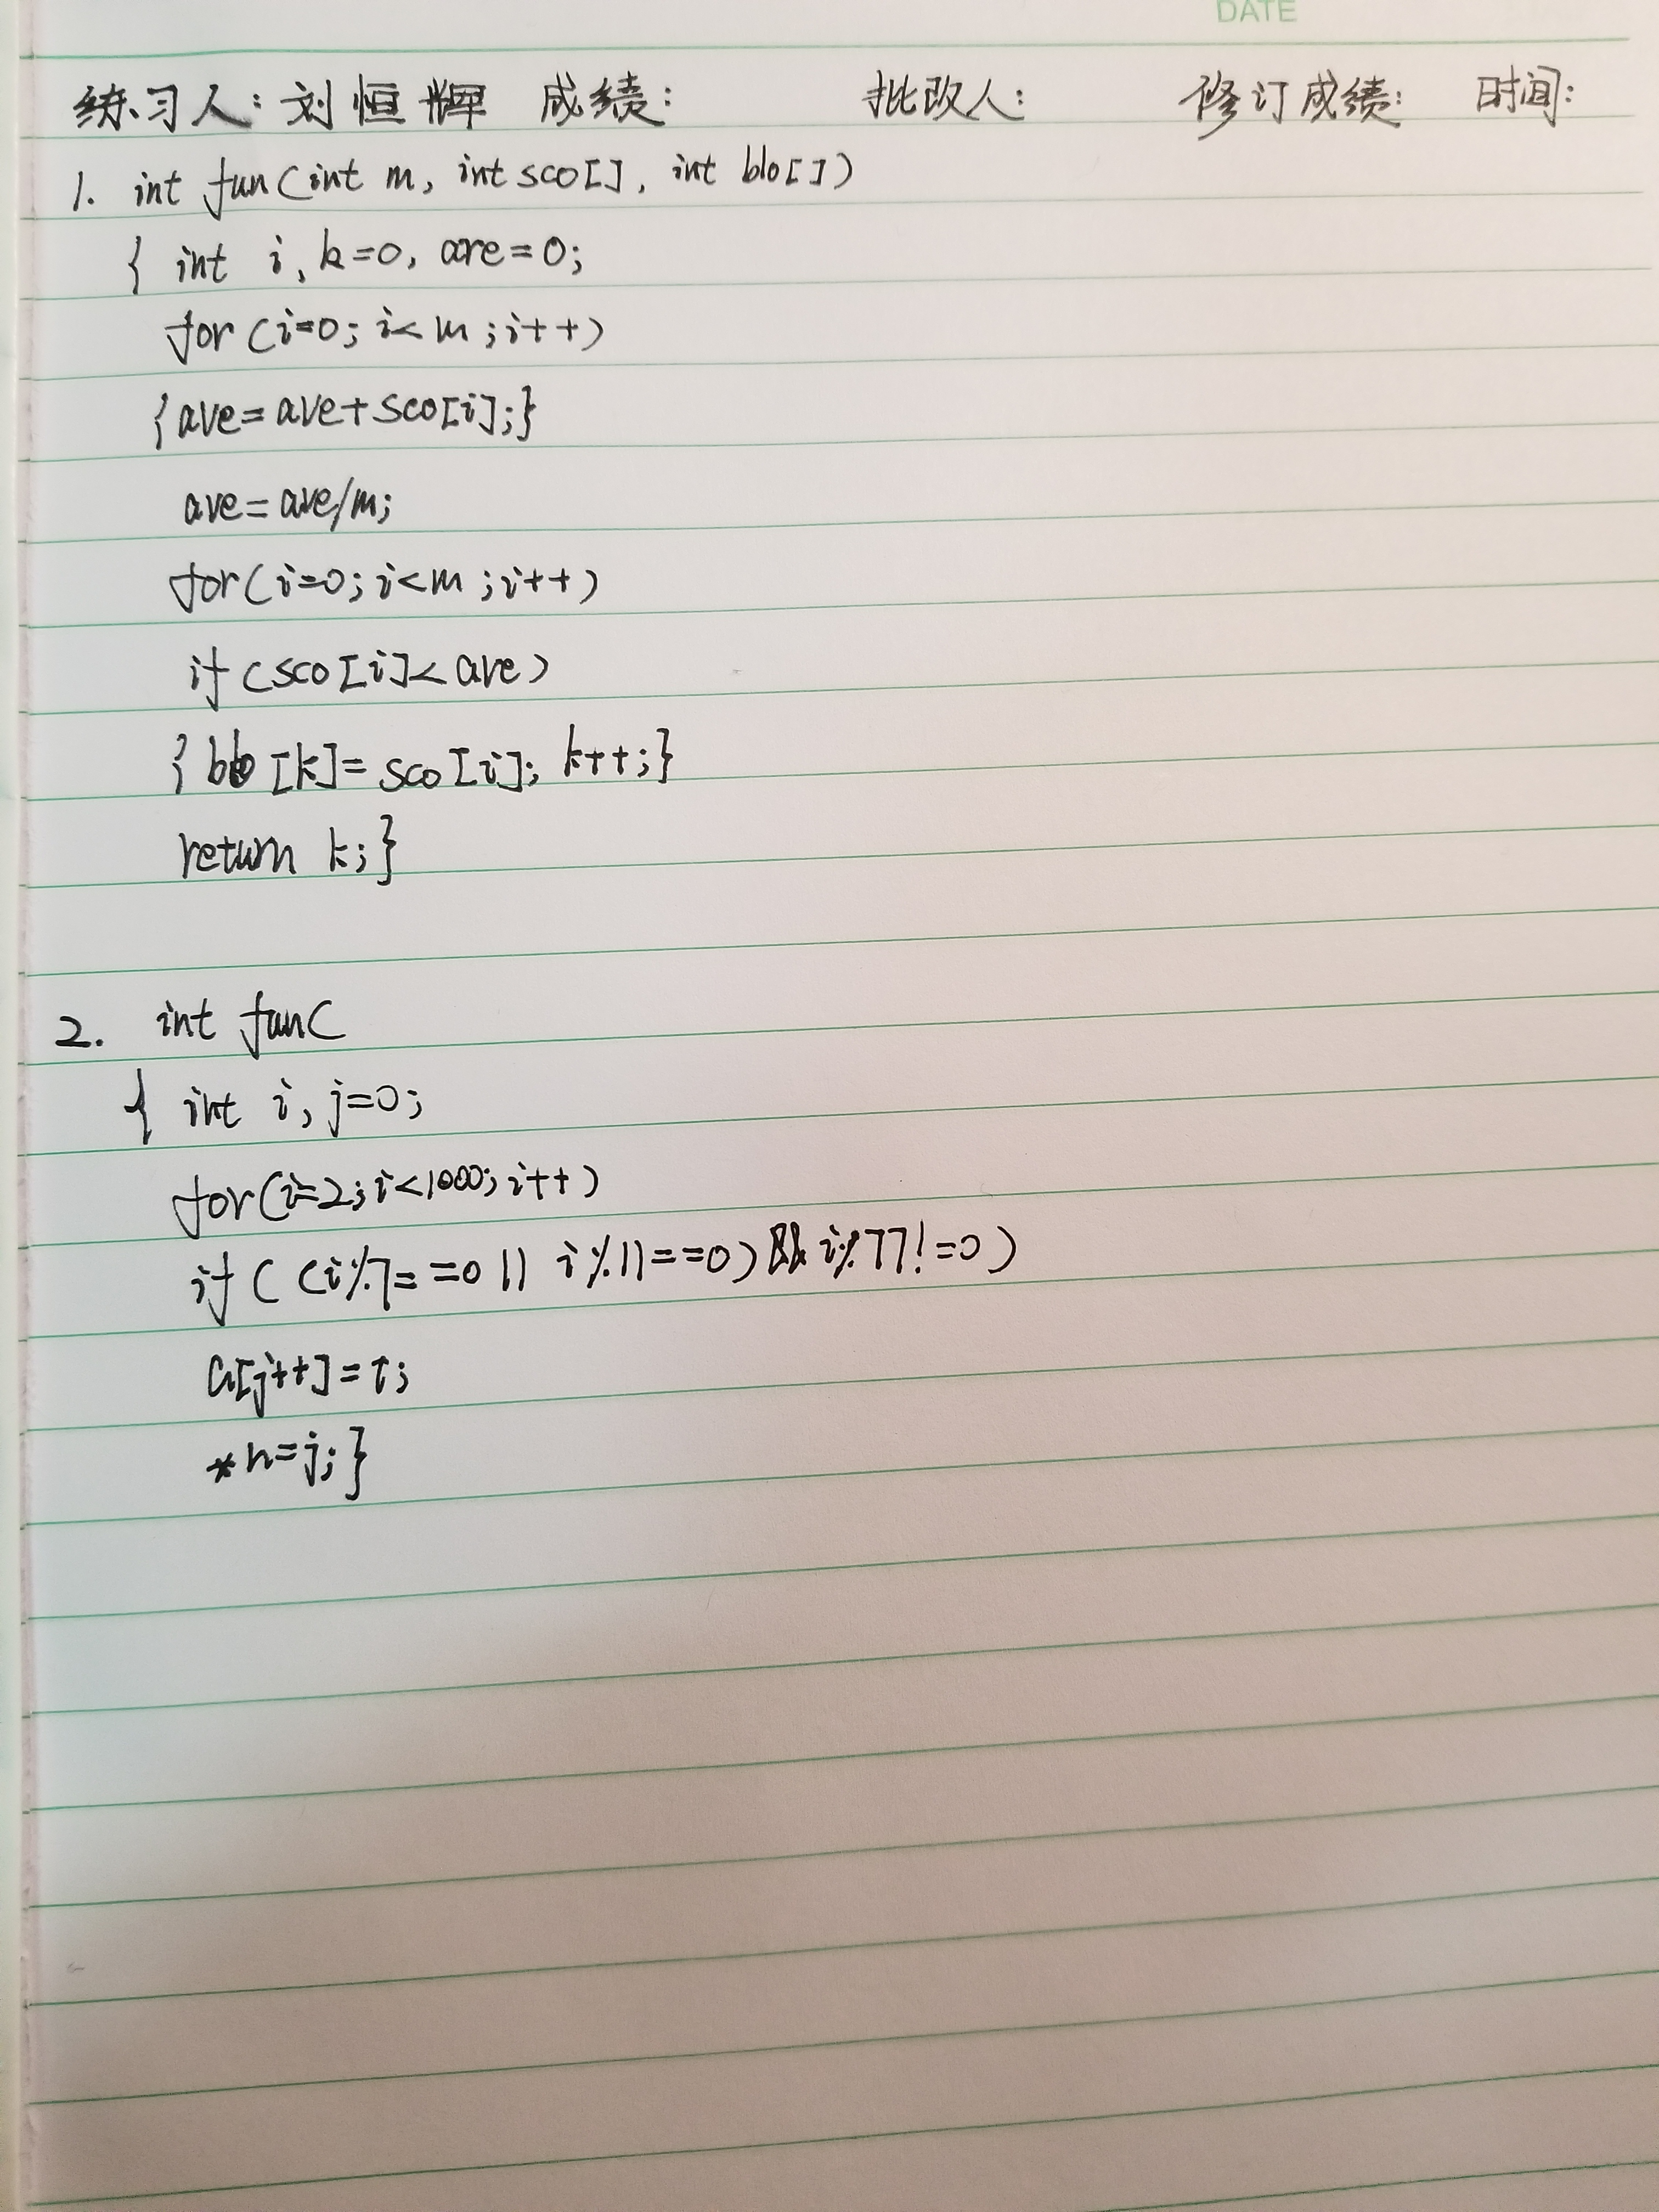 DATE
练习人：刘恒辉 成绩： 批改人： 修订成绩： 时间：
1. int fun(int m, int sco[], int blo[])
{ int i, k=0, are=0;
for(i=0; i<m; i++)
{ave=ave+sco[i];}
ave=ave/m;
for(i=0; i<m; i++)
if(sco[i]<ave)
{blo[k]=sco[i]; k++;}
return k;}
2. int fun(
{ int i, j=0;
for(i=2; i<1000; i++)
if((i%7==0 || i%11==0)&& i%77!=0)
a[j++]=i;
*n=j;}